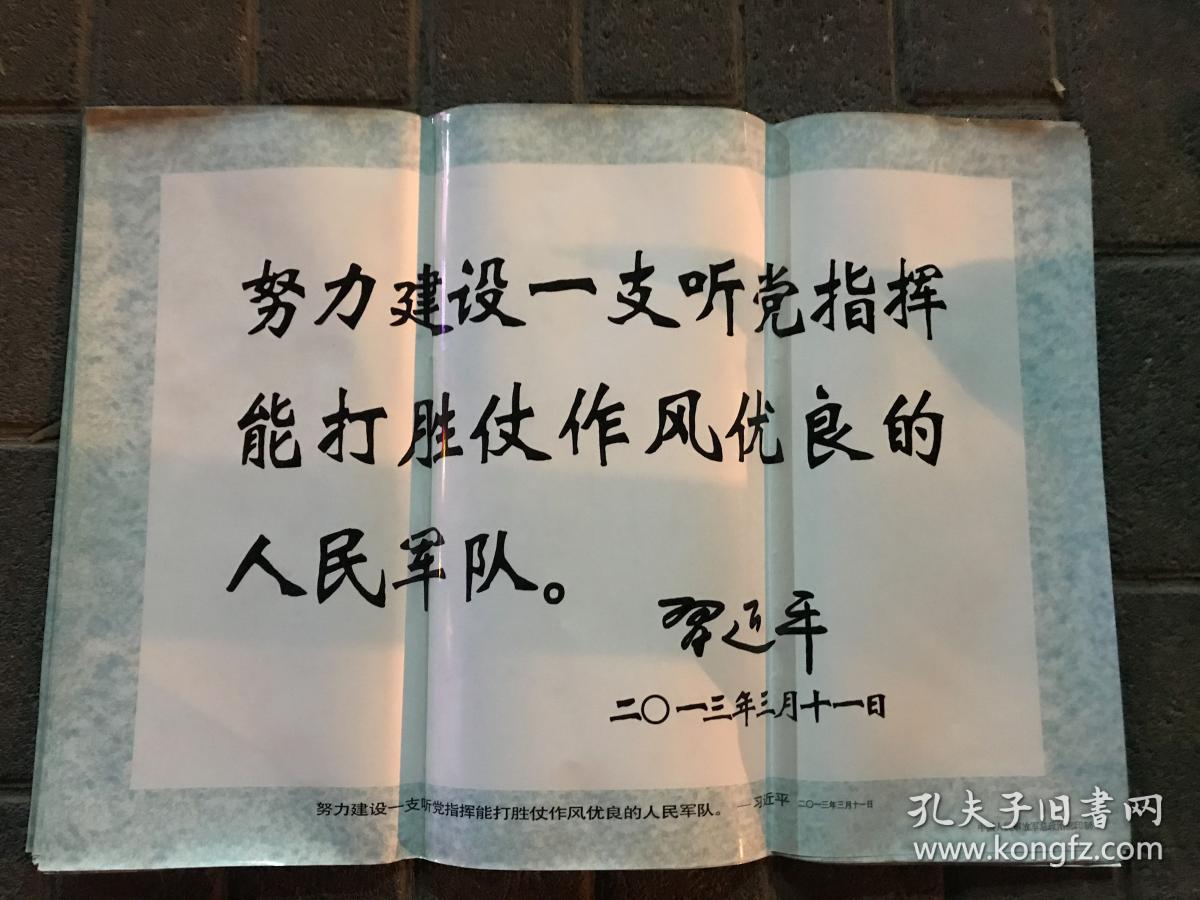 努力建设一支听党指挥
能打胜仗作风优良的
人民军队。
习近平
二〇一三年三月十一日
努力建设一支听党指挥能打胜仗作风优良的人民军队。 —习近平 二〇一三年三月十一日
孔夫子旧書网
www.kongfz.com